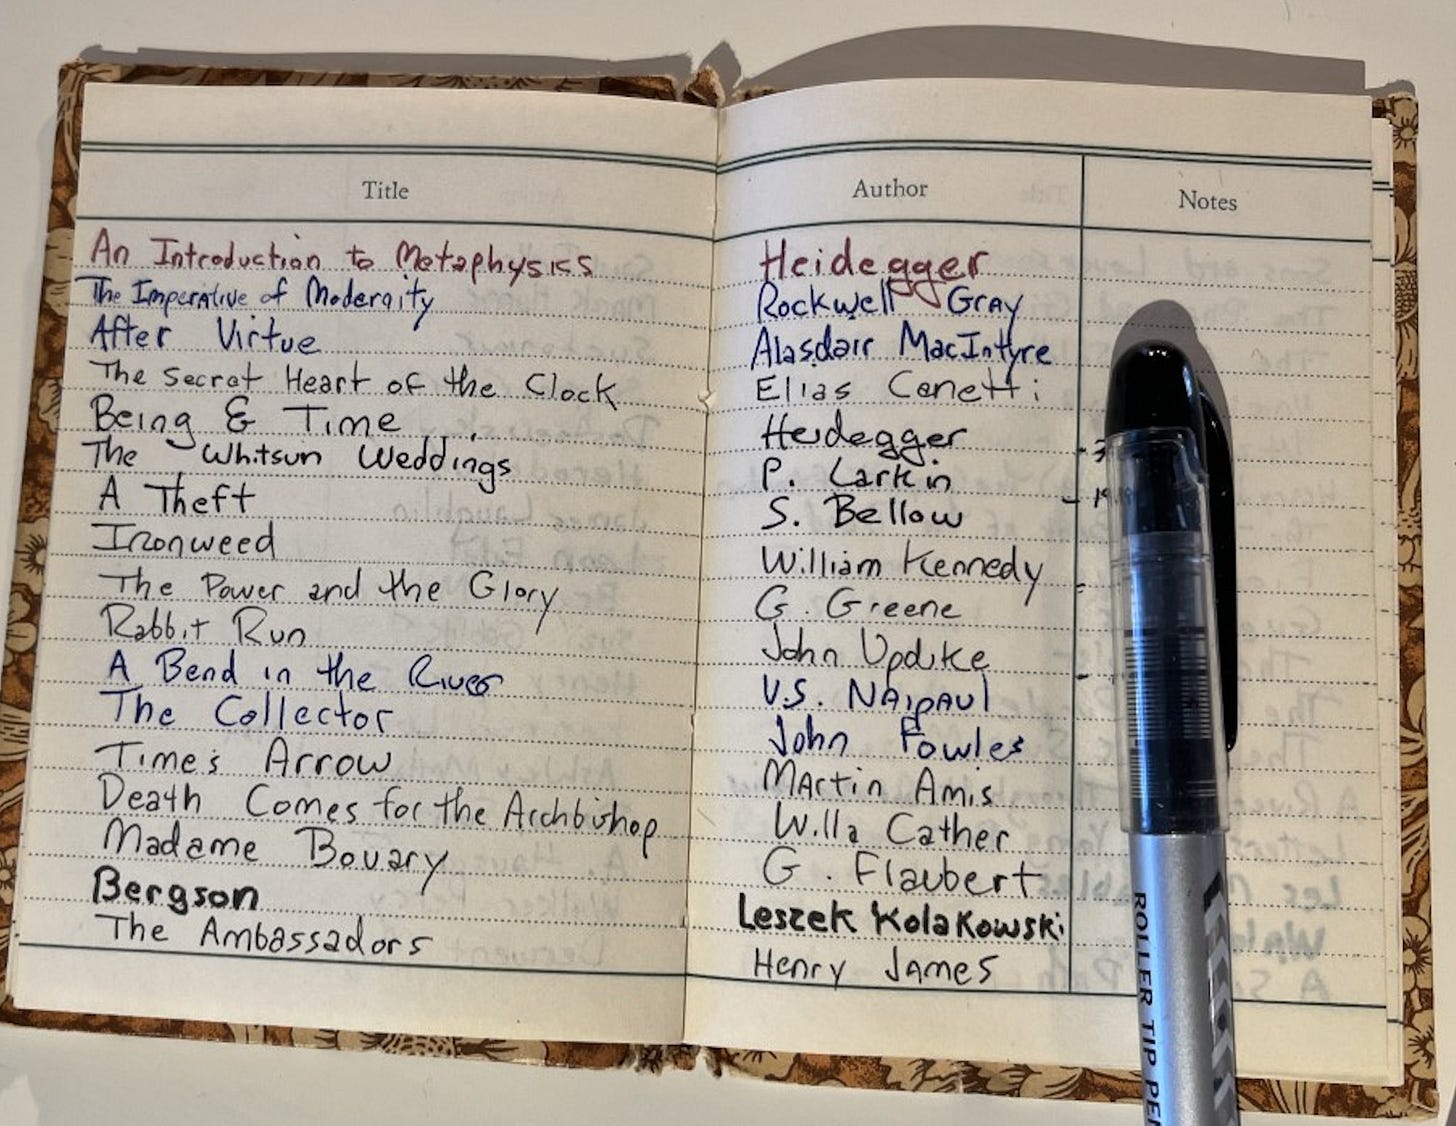 Title
An Introduction to Metaphysics
The Imperative of Modernity
After Virtue
The Secret Heart of the Clock
Being & Time
The Whitsun Weddings
A Theft
Ironweed
The Power and the Glory
Rabbit Run
A Bend in the River
The Collector
Time's Arrow
Death Comes for the Archbishop
Madame Bovary
Bergson
The Ambassadors
Author Notes
Heidegger
Rockwell Gray
Alasdair MacIntyre
Elias Canetti
Heidegger
P. Larkin
S. Bellow
William Kennedy
G. Greene
John Updike
V.S. NAIPAUL
John Fowles
Martin Amis
Willa Cather
G. Flaubert
Leszek Kolakowski
Henry James
ROLLER TIP PEN